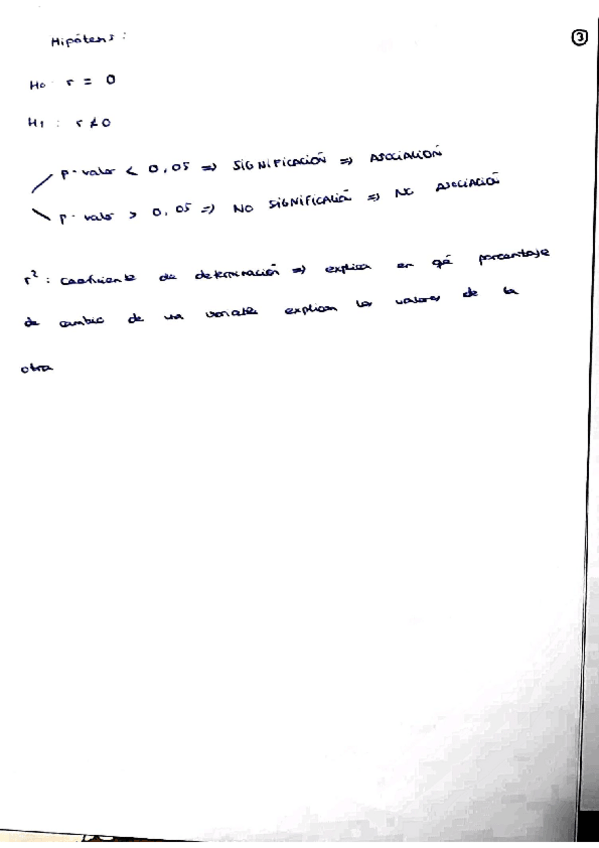 Hipótesis :
③
H₀ : r = 0
H₁ : r ≠ 0
p-valor < 0,05 => SIGNIFICACIÓN => ASOCIACIÓN
p-valor > 0,05 => NO SIGNIFICACIÓN => NO ASOCIACIÓN
r² : coeficiente de determinación => explica en qué porcentaje
de cambio de una variable explican los valores de la
otra